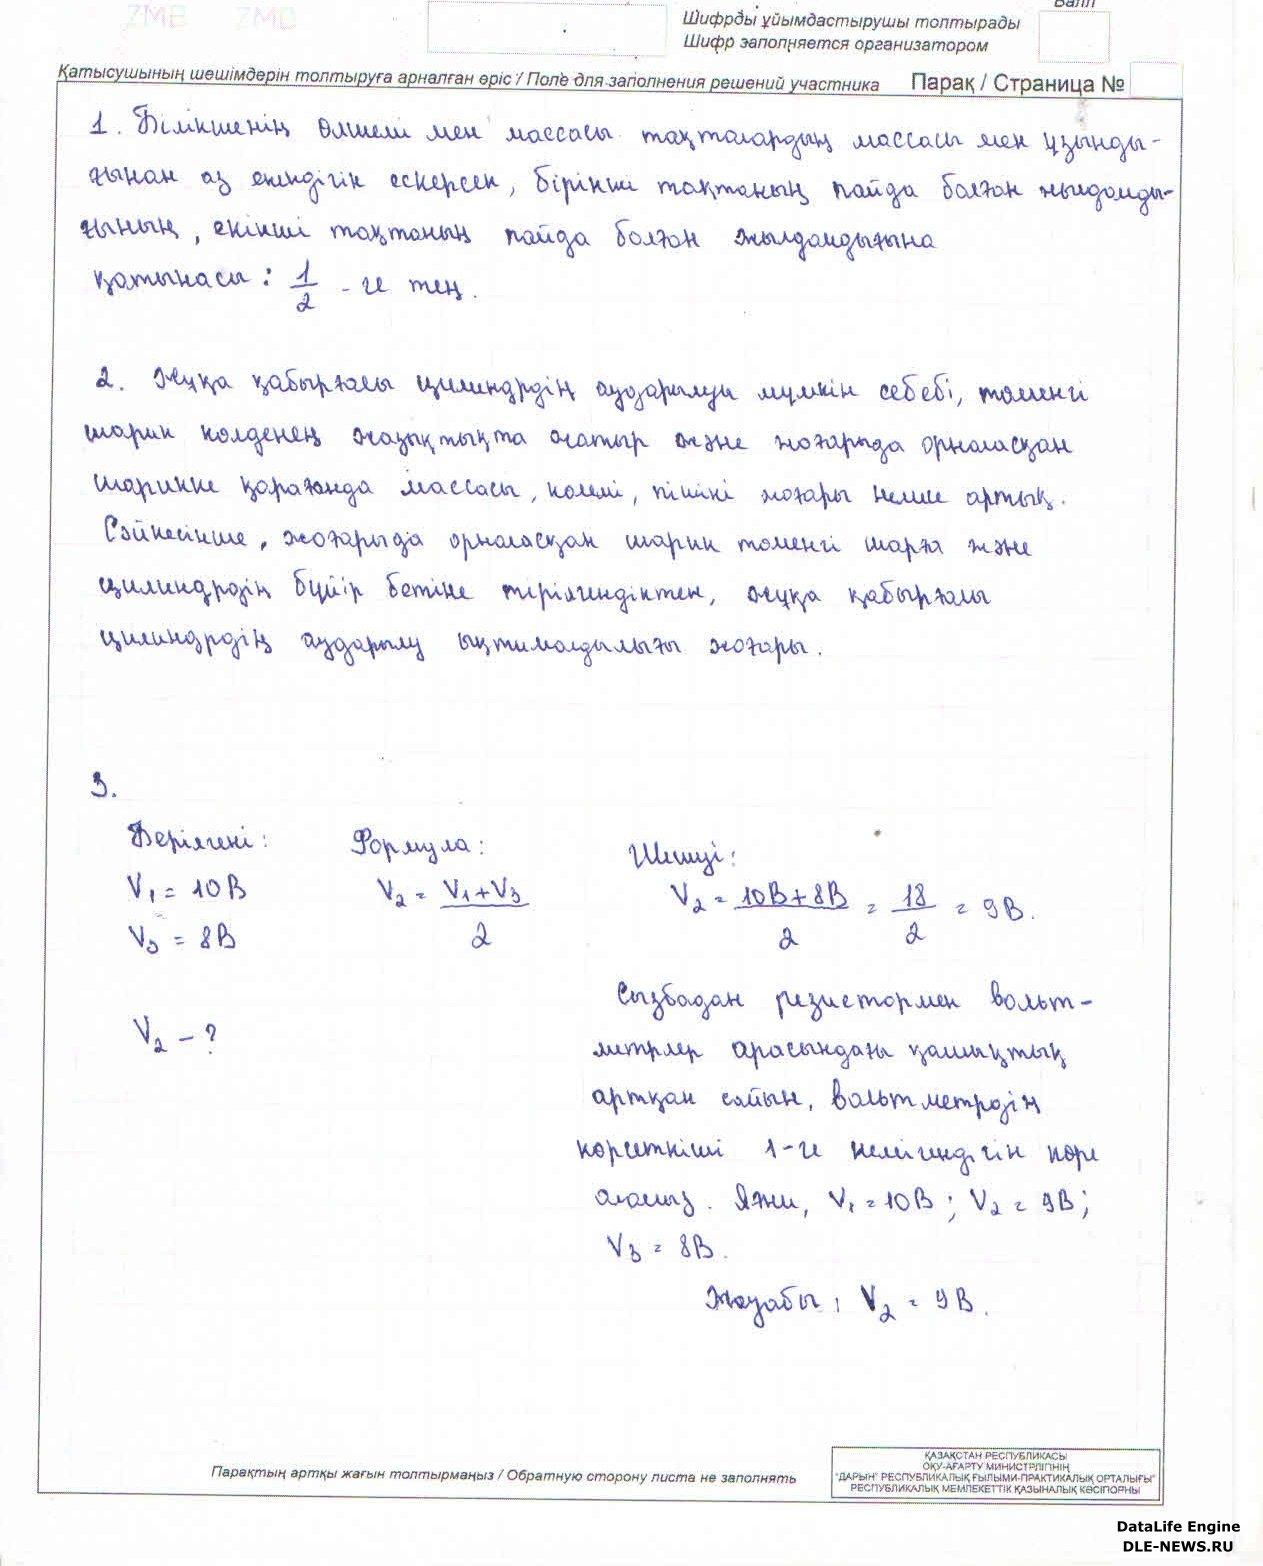 ZMB ZMB
Балл
Шифрды ұйымдастырушы толтырады
Шифр заполняется организатором
Қатысушының шешімдерін толтыруға арналған өріс / Поле для заполнения решений участника Парақ / Страница №
1. Білікшенің өлшемі мен массасы тақталардың массасы мен ұзынды-
ғынан аз екендігін ескерсек, бірінші тақтаның пайда болған жылдамды-
ғының, екінші тақтаның пайда болған жылдамдығына
қатынасы: 1/2 - ге тең.
2. Жұқа қабырғалы цилиндрдің аударылуы мүмкін себебі, төменгі
шарик көлденең жазықтықта жатыр және жоғарыда орналасқан
шарикке қарағанда массасы, көлемі, пішіні жоғары немее артық.
Сәйкесінше, жоғарыда орналасқан шарик төменгі шарға және
цилиндрдің бүйір бетіне тірелгендіктен, жұқа қабырғалы
цилиндрдің аударылу ықтималдылығы жоғары.
3.
Берілгені: Формула: Шешуі:
V₁ = 10В V₂ = (V₁+V₃)/2 V₂ = (10В+8В)/2 = 18/2 = 9В.
V₃ = 8В
V₂ - ?
Сызбадан резистормен вольт-
метрлер арасындағы қашықтық
артқан сайын, вольтметрдің
көрсеткіші 1-ге кемігендігін көре
аламыз. Яғни, V₁ = 10В; V₂ = 9В;
V₃ = 8В.
Жауабы: V₂ = 9В.
Парақтың артқы жағын толтырмаңыз / Обратную сторону листа не заполнять
ҚАЗАҚСТАН РЕСПУБЛИКАСЫ
ОҚУ-АҒАРТУ МИНИСТРЛІГІНІҢ
"ДАРЫН" РЕСПУБЛИКАЛЫҚ ҒЫЛЫМИ-ПРАКТИКАЛЫҚ ОРТАЛЫҒЫ"
РЕСПУБЛИКАЛЫҚ МЕМЛЕКЕТТІК ҚАЗЫНАЛЫҚ КӘСІПОРНЫ
DataLife Engine
DLE-NEWS.RU